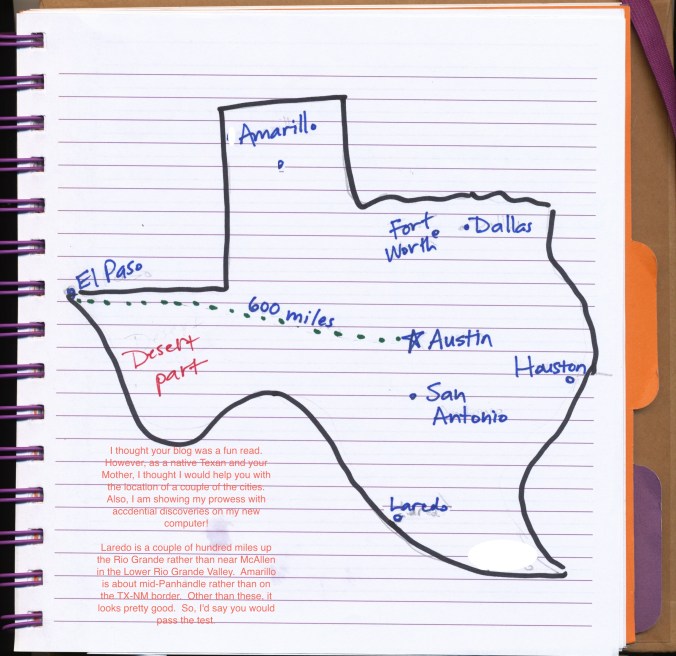 Amarillo
Fort
Worth
Dallas
El Paso
600 miles
Austin
Desert
part
Houston
San
Antonio
I thought your blog was a fun read.
However, as a native Texan and your
Mother, I thought I would help you with
the location of a couple of the cities.
Also, I am showing my prowess with
accdential discoveries on my new
computer!
Laredo
Laredo is a couple of hundred miles up
the Rio Grande rather than near McAllen
in the Lower Rio Grande Valley.  Amarillo
is about mid-Panhandle rather than on
the TX-NM border.  Other than these, it
looks pretty good.  So, I'd say you would
pass the test.